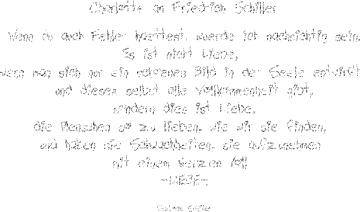 Charlotte an Friedrich Schiller
Wenn du auch Fehler hättest, werde ich nachsichtig sein.
Es ist nicht Liebe,
wenn man sich nur ein schönes Bild in der Seele entwirft
und diesem selbst alle Vollkommenheit gibt,
sondern dies ist Liebe,
die Menschen so zu lieben, wie wir sie finden,
und haben sie Schwachheiten, sie aufzunehmen
mit einem Herzen voll
-LIEBE-